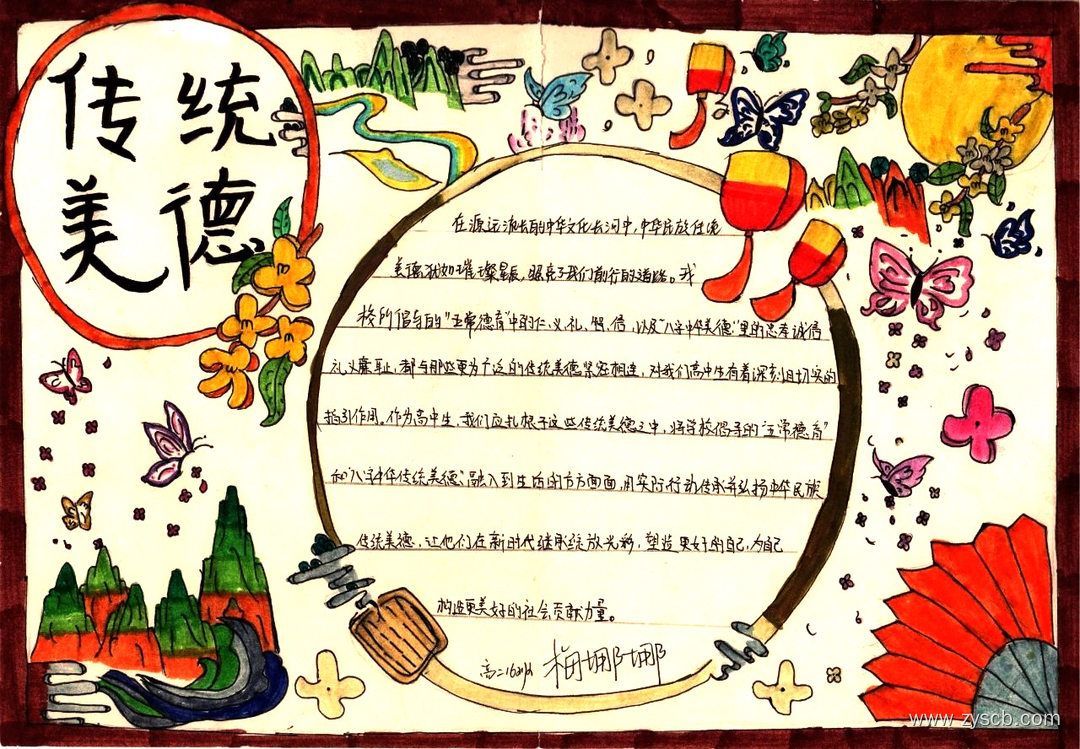 传统
美德
在源远流长的中华文化长河中,中华民族传统
美德犹如璀璨星辰,照亮了我们前行的道路。我
校所倡导的"五常德育"中的仁、义、礼、智、信,以及"八字中华美德"里的忠孝诚信
礼义廉耻,都与那些更为广泛的传统美德紧密相连,对我们高中生有着深刻且切实的
指引作用。作为高中生,我们应扎根于这些传统美德之中,将学校倡导的"五常德育"
和"八字中华传统美德"融入到生活的方方面面,用实际行动传承并弘扬中华民族
传统美德,让他们在新时代继续绽放光彩,塑造更好的自己,为自己
构造更美好的社会贡献力量。
高二16
梅娜娜
www.zyscb.com